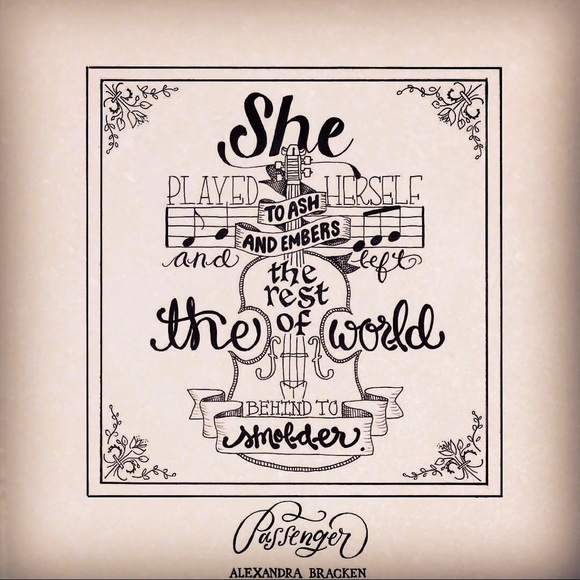 She
PLAYED HERSELF
TO ASH
AND EMBERS
and left
the
rest
the of world
BEHIND TO
smolder.
Passenger
ALEXANDRA BRACKEN